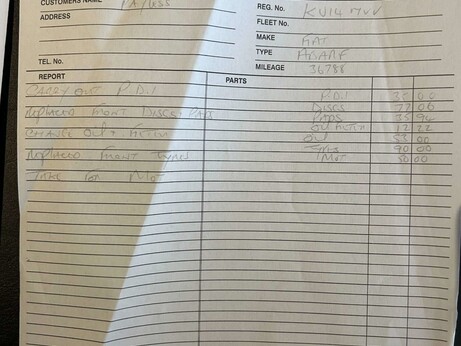 CUSTOMERS NAME PAYLESS
ADDRESS
TEL. No.
REG. No. KU14 MVV
FLEET No.
MAKE FIAT
TYPE ABARTH
MILEAGE 36788
REPORT PARTS
CARRY OUT P.D.I P.D.I 00
REPLACED FRONT DISCS PADS DISCS 77 06
PADS 35 94
CHANGE OIL + FILTER OIL FILTER 12 22
OIL 55 00
REPLACED FRONT TYRES TYRES 90 00
MOT 50 00
TAKE FOR MOT